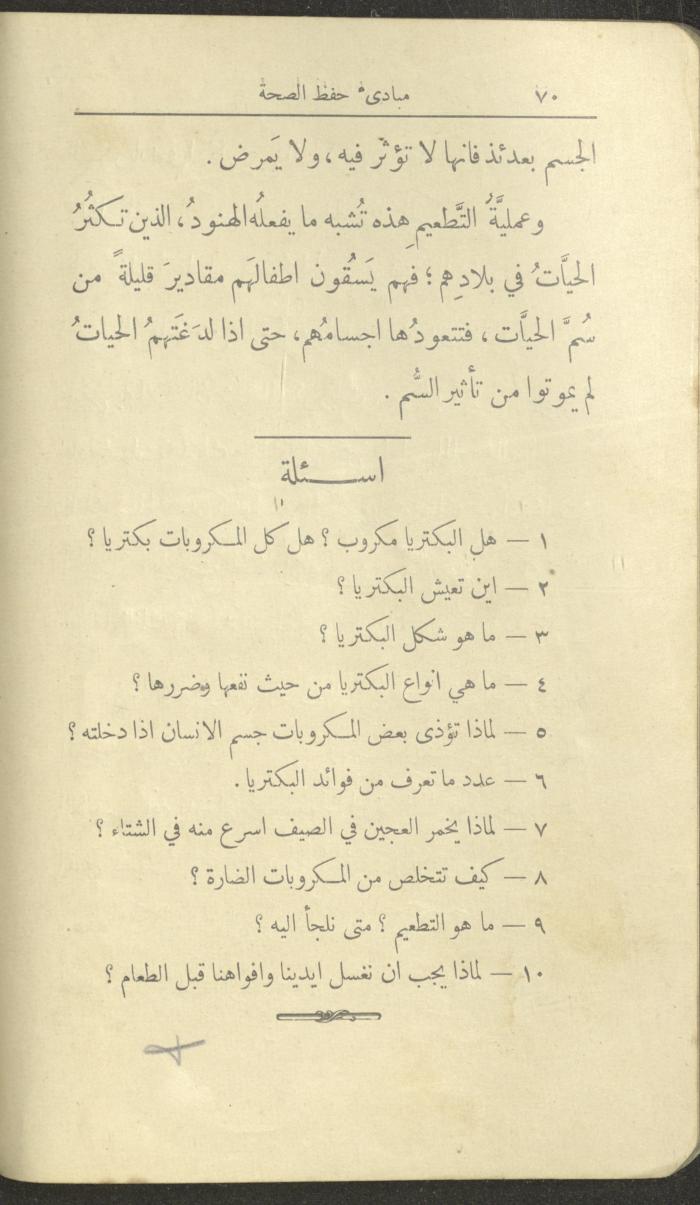 ٧٠ مبادىء حفظ الصحة
الجسم بعدئذ فانها لا تؤثّر فيه، ولا يَمرض.
وعمليَّةُ التَّطعيمِ هذه تُشبه ما يفعلُه الهنودُ، الذين تكثُرُ
الحيَّاتُ في بلادِهم؛ فهم يَسقُون اطفالَهم مقاديرَ قليلةً من
سُمَّ الحيَّات، فتتعودُها اجسامُهم، حتى اذا لدَغَتهمُ الحياتُ
لم يموتوا من تأثير السُّم.
اســئلة
١ — هل البكتريا مكروب؟ هل كل المكروبات بكتريا؟
٢ — اين تعيش البكتريا؟
٣ — ما هو شكل البكتريا؟
٤ — ما هي انواع البكتريا من حيث نفعها وضررها؟
٥ — لماذا تؤذى بعض المكروبات جسم الانسان اذا دخلته؟
٦ — عدد ما تعرف من فوائد البكتريا.
٧ — لماذا يخمر العجين في الصيف اسرع منه في الشتاء؟
٨ — كيف تتخلص من المكروبات الضارة؟
٩ — ما هو التطعيم؟ متى نلجأ اليه؟
١٠ — لماذا يجب ان نغسل ايدينا وافواهنا قبل الطعام؟